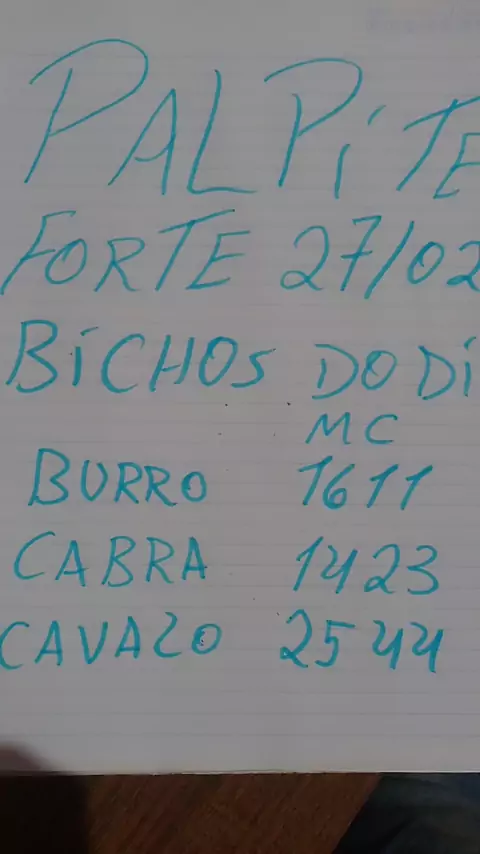 PALPiTE
FORTE 27/02
BiCHOS DO Di
MC
BURRO 1611
CABRA 1423
CAVALO 2544